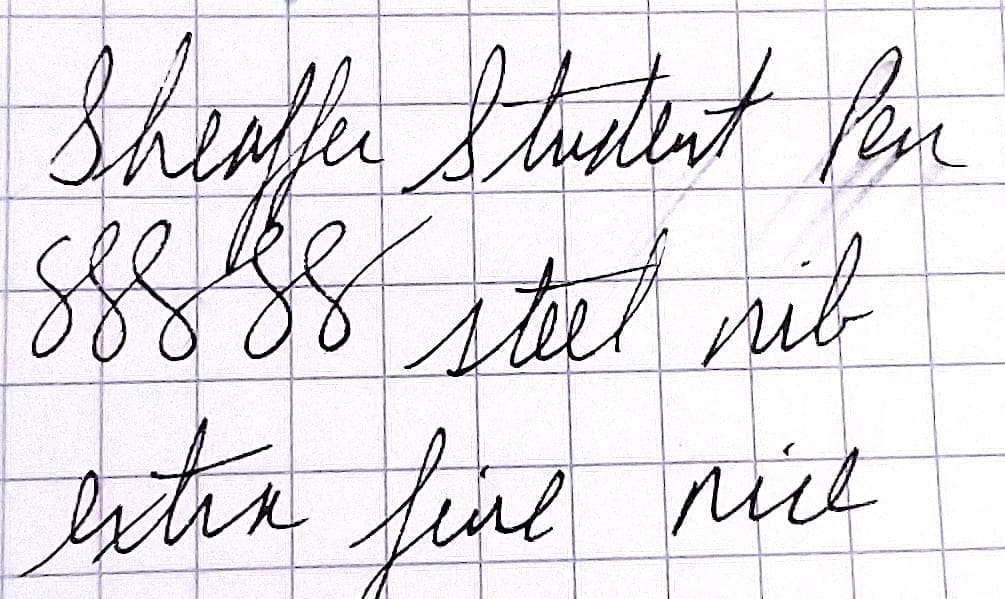 Sheaffer Student Pen
888 88 steel nib
extra fine nice